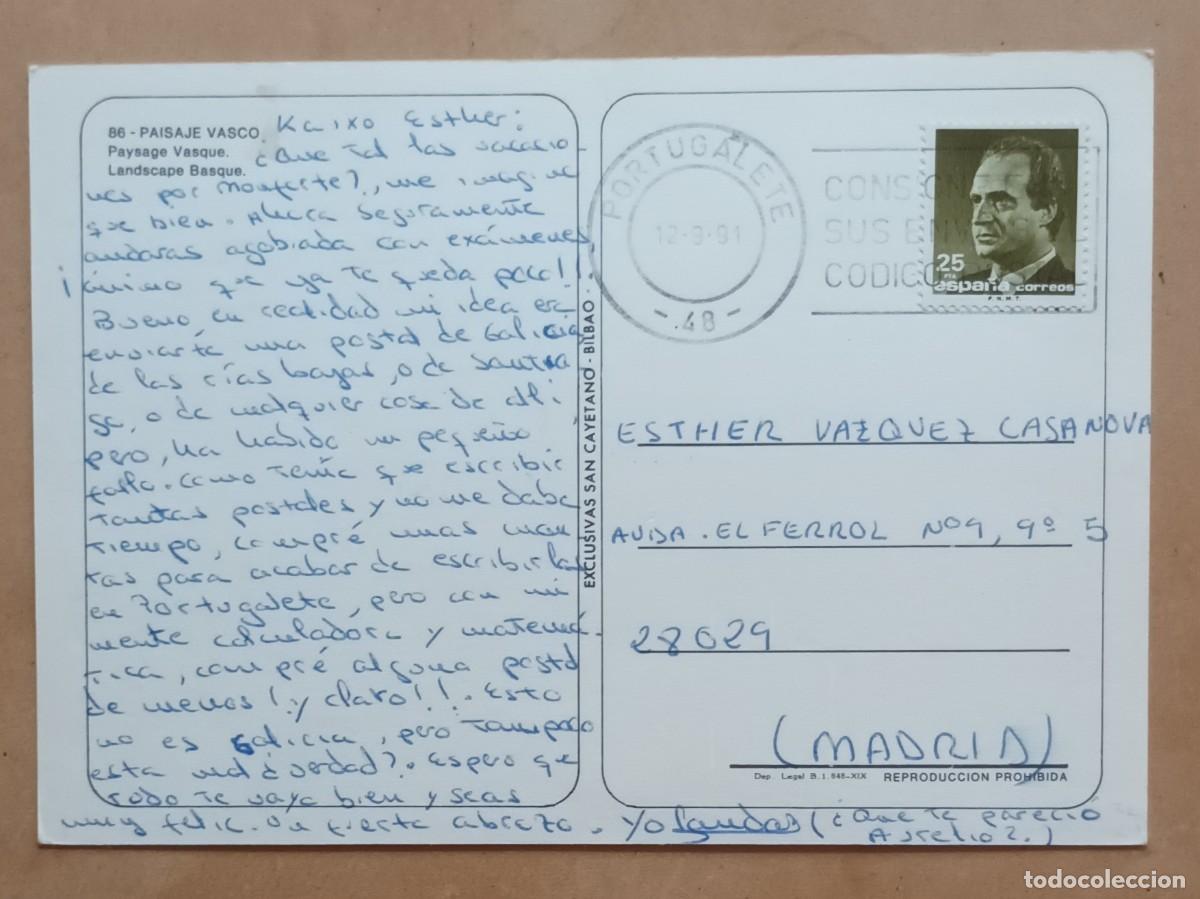 86 - PAISAJE VASCO
Paysage Vasque.
Landscape Basque.
Kaixo Esther:
¿Que tal las vacacio
nes por Monforte?, me imagino
que bien. Ahora seguramente
andaras agobiada con exámenes,
¡ánimo que ya te queda poco!!.
Bueno, en realidad mi idea era
enviarte una postal de Galicia
de las rías bajas, o de Santia
go, o de cualquier cosa de allí,
pero, ha habido un pequeño
fallo. Como tenía que escribir
tantas postales y no me daba
tiempo, compré unas cuan
tas para acabar de escribirlas
en Portugalete, pero con mi
mente calculadora y matemá
tica, compré alguna postal
de menos! y claro!!. Esto
no es Galicia, pero tampoco
esta mal ¿verdad?. Espero que
todo te vaya bien y seas
muy feliz. Un fuerte abrazo. Yolanda (¿Que te pareció
Aurelio?.)
EXCLUSIVAS SAN CAYETANO - BILBAO
PORTUGALETE
12-9-91
- .48 -
CONSIGNE
SUS ENV
CODIGO
25
PTA
españa correos
F.N.M.T.
ESTHER VAZQUEZ CASANOVA
AVDA. EL FERROL Nº9, 9º 5
28029
(MADRID)
Dep. Legal B.1.648-XIX
REPRODUCCION PROHIBIDA
todocoleccion